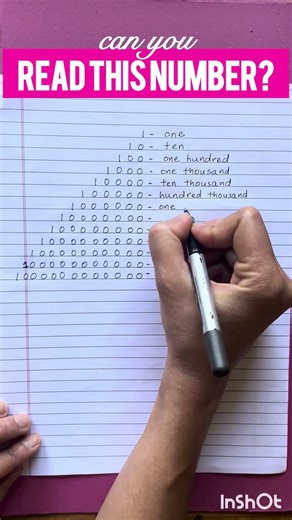 can you
READ THIS NUMBER?
1 - one
10 - ten
100 - one hundred
1000 - one thousand
10000 - ten thousand
100000 - hundred thousand
1000000 - one
10000000 -
100000000 -
1000000000 -
10000000000 -
100000000000 -
1000000000000 -
InShOt